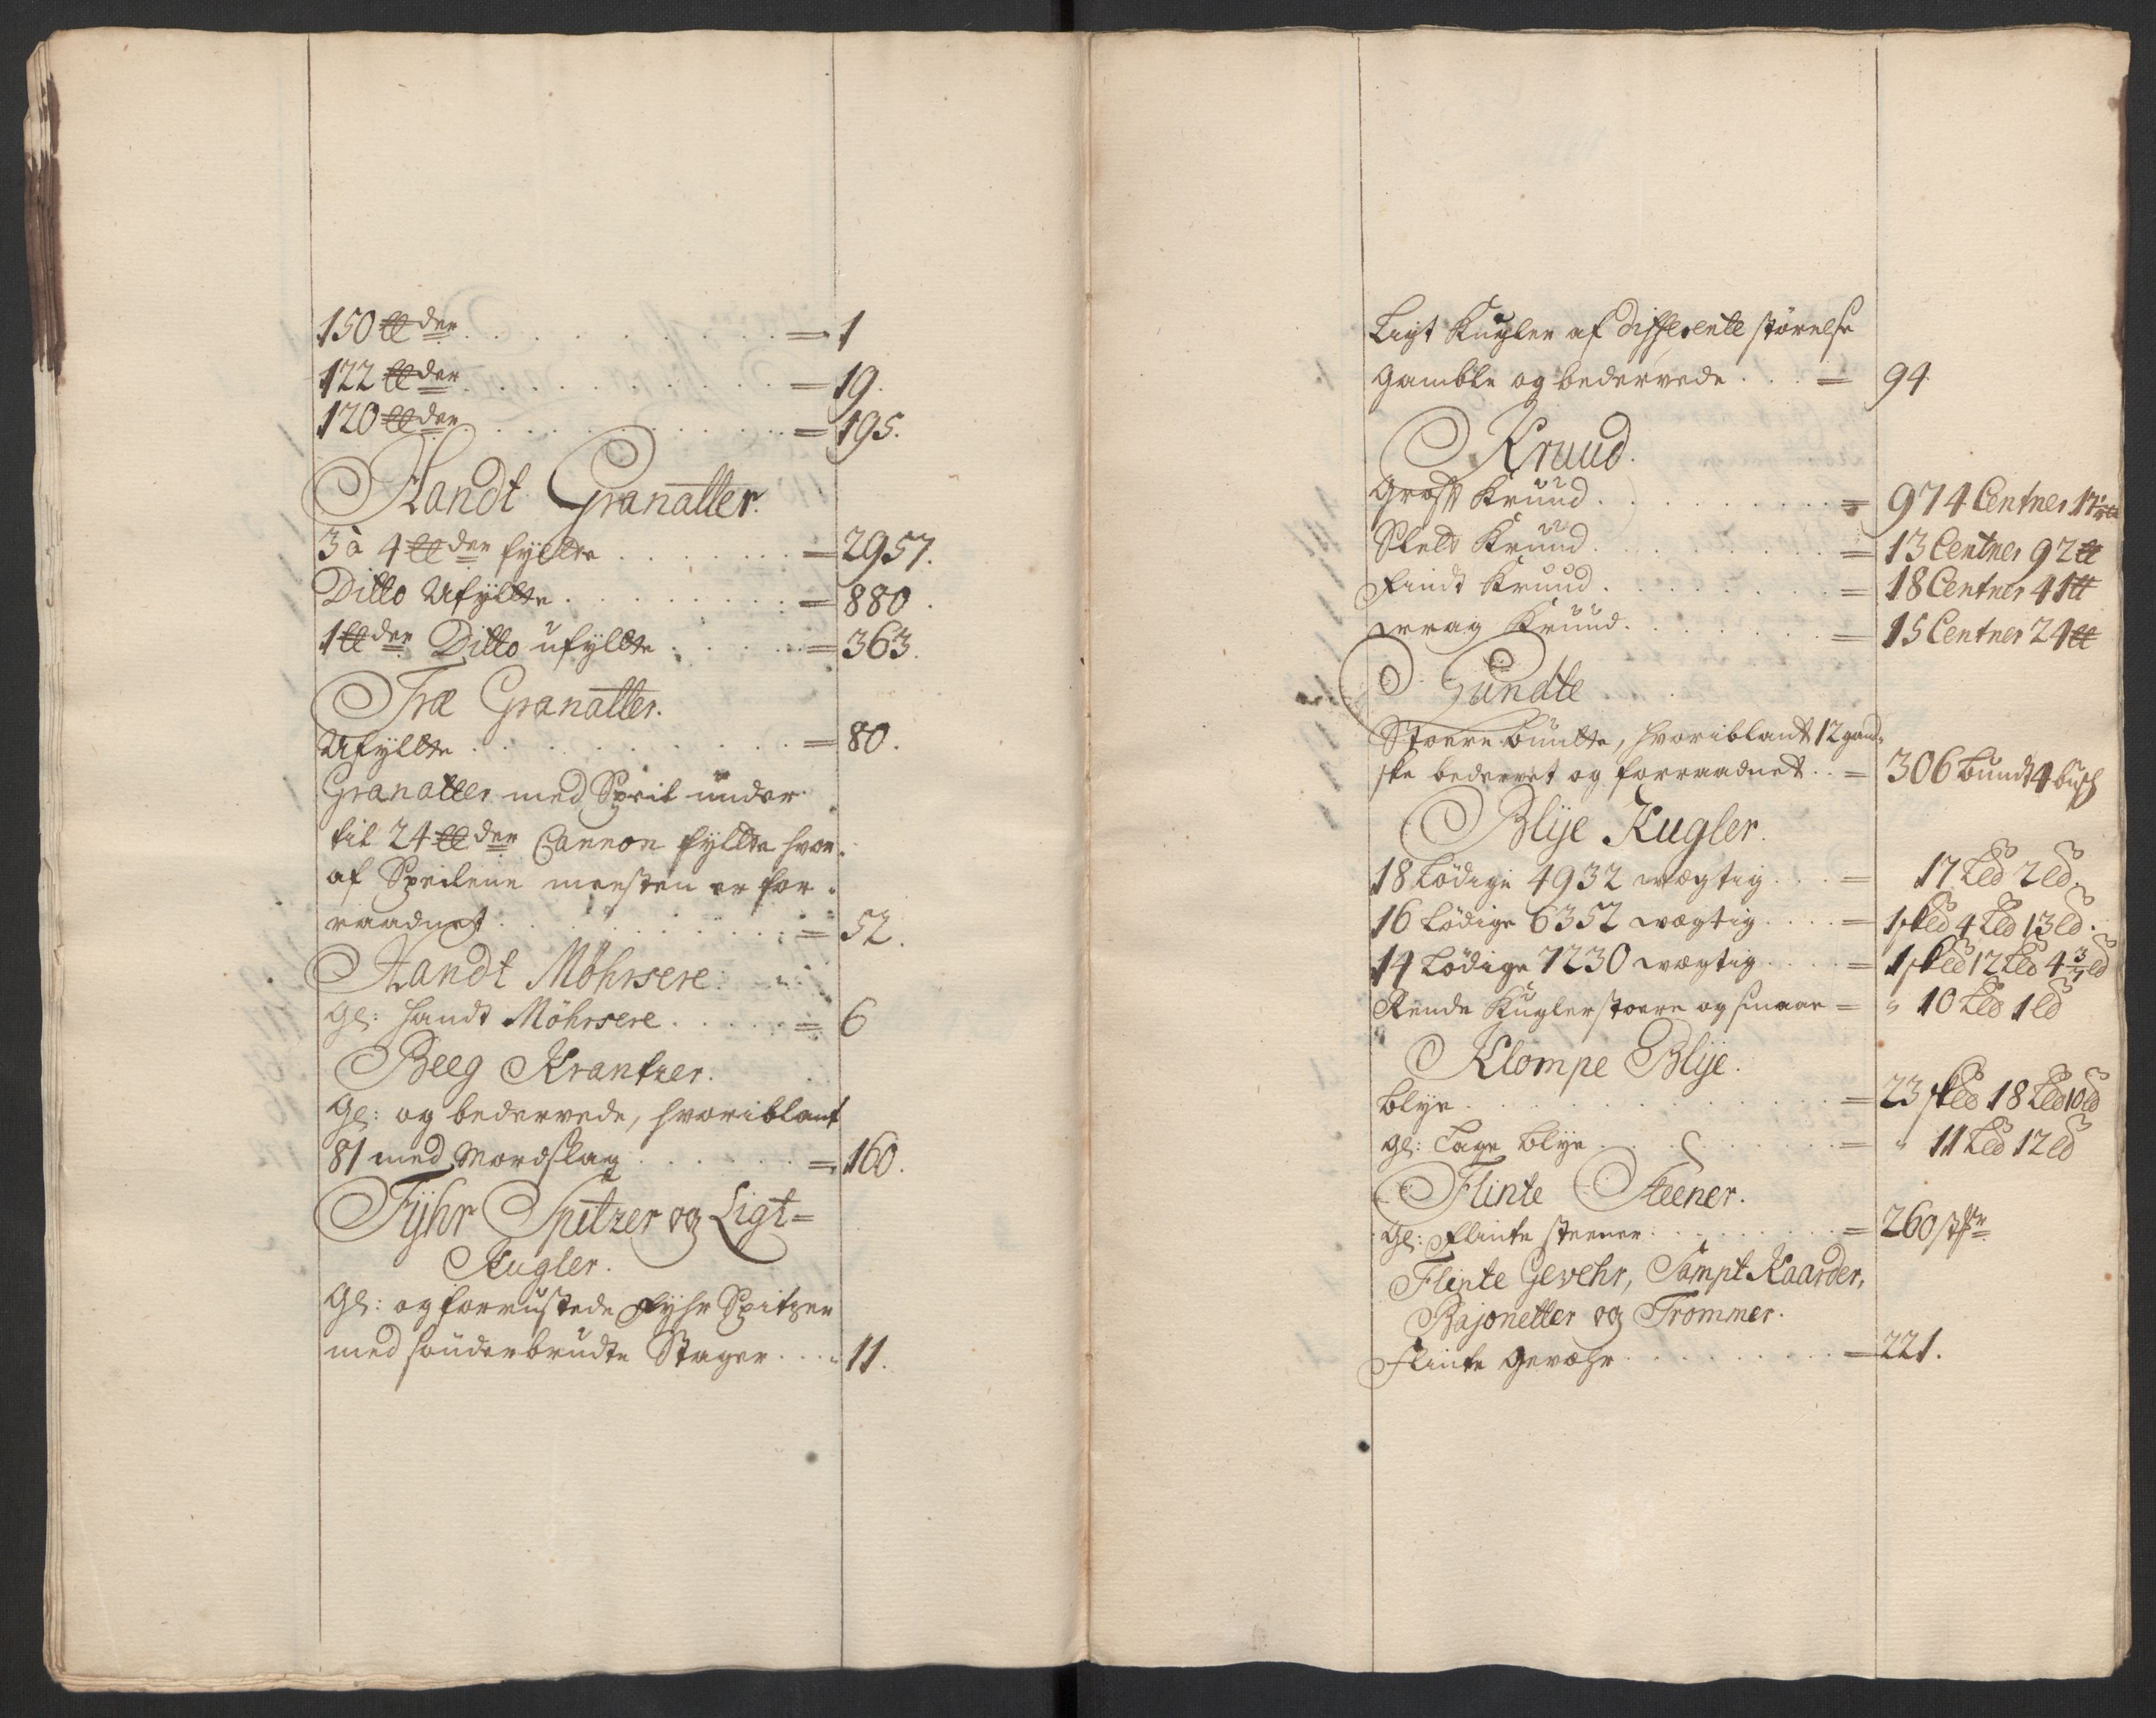 150 ℔der . . . . . . . . = 1
122 ℔der . . . . . . . . = 19.
120 ℔der . . . . . . . . = 195.
Handt Granatter.
3 à 4 ℔der fyldte . . . . . = 2957.
Ditto Ufyldte . . . . . . = 880.
1 ℔der Ditto ufyldte . . . . = 363.
Træ Granatter.
Ufyldte . . . . . . . . = 80.
Granatter med Speil under
til 24 ℔der Cannon fyldte hvor
af Speilene meesten er for
raadnet . . . . . . . . = 52.
Handt Möhrsere.
Gl: Handt Möhrsere . . . . = 6
Beeg Krantzer.
Gl: og bedervede, hvoriblant
81 med Mordslag . . . . . = 160.
Fyhr Spitzer og Ligt=
Kugler.
Gl: og forrustede Fyhr Spitzer
med sönderbrudte Stager . . . 11.
Ligt Kugler af differente störelse
gamble og bedervede . . . = 94
Kruud.
Groft Kruud . . . . . . . = 974 Centner
Slett Kruud . . . . . . . = 13 Centner 92 ℔
Findt Kruud . . . . . . . = 18 Centner 41 ℔
wrag Kruud . . . . . . . = 15 Centner 24 ℔
Lundte
Stoere bundte, hvoriblant 12 gand-
ske bedervet og forraadnet . . = 306 bundt 4 buch
Blije Kugler.
18 Lödige 4932 wægtig . . . = 17 L℔ 2 ℔.
16 Lödige 6352 wægtig . . . = 1 sk℔ 4 L℔ 13 ℔.
14 Lödige 7230 wægtig . . . = 1 sk℔ 12 L℔ 4 3/4 ℔
Rende Kugler stoere og smaae = " 10 L℔ 1 ℔
Klompe Blije.
Blye . . . . . . . . = 23 sk℔ 18 L℔ 10 ℔
Gl: Tage Blye . . . . . . = " 11 L℔ 12 ℔
Flinte Steener.
Gl: Flinte steener . . . . . = 260 st:
Flinte Gevehr, Sampt Kaarder,
Bajonetter og Trommer.
Flinte Gevehr . . . . . . = 221.